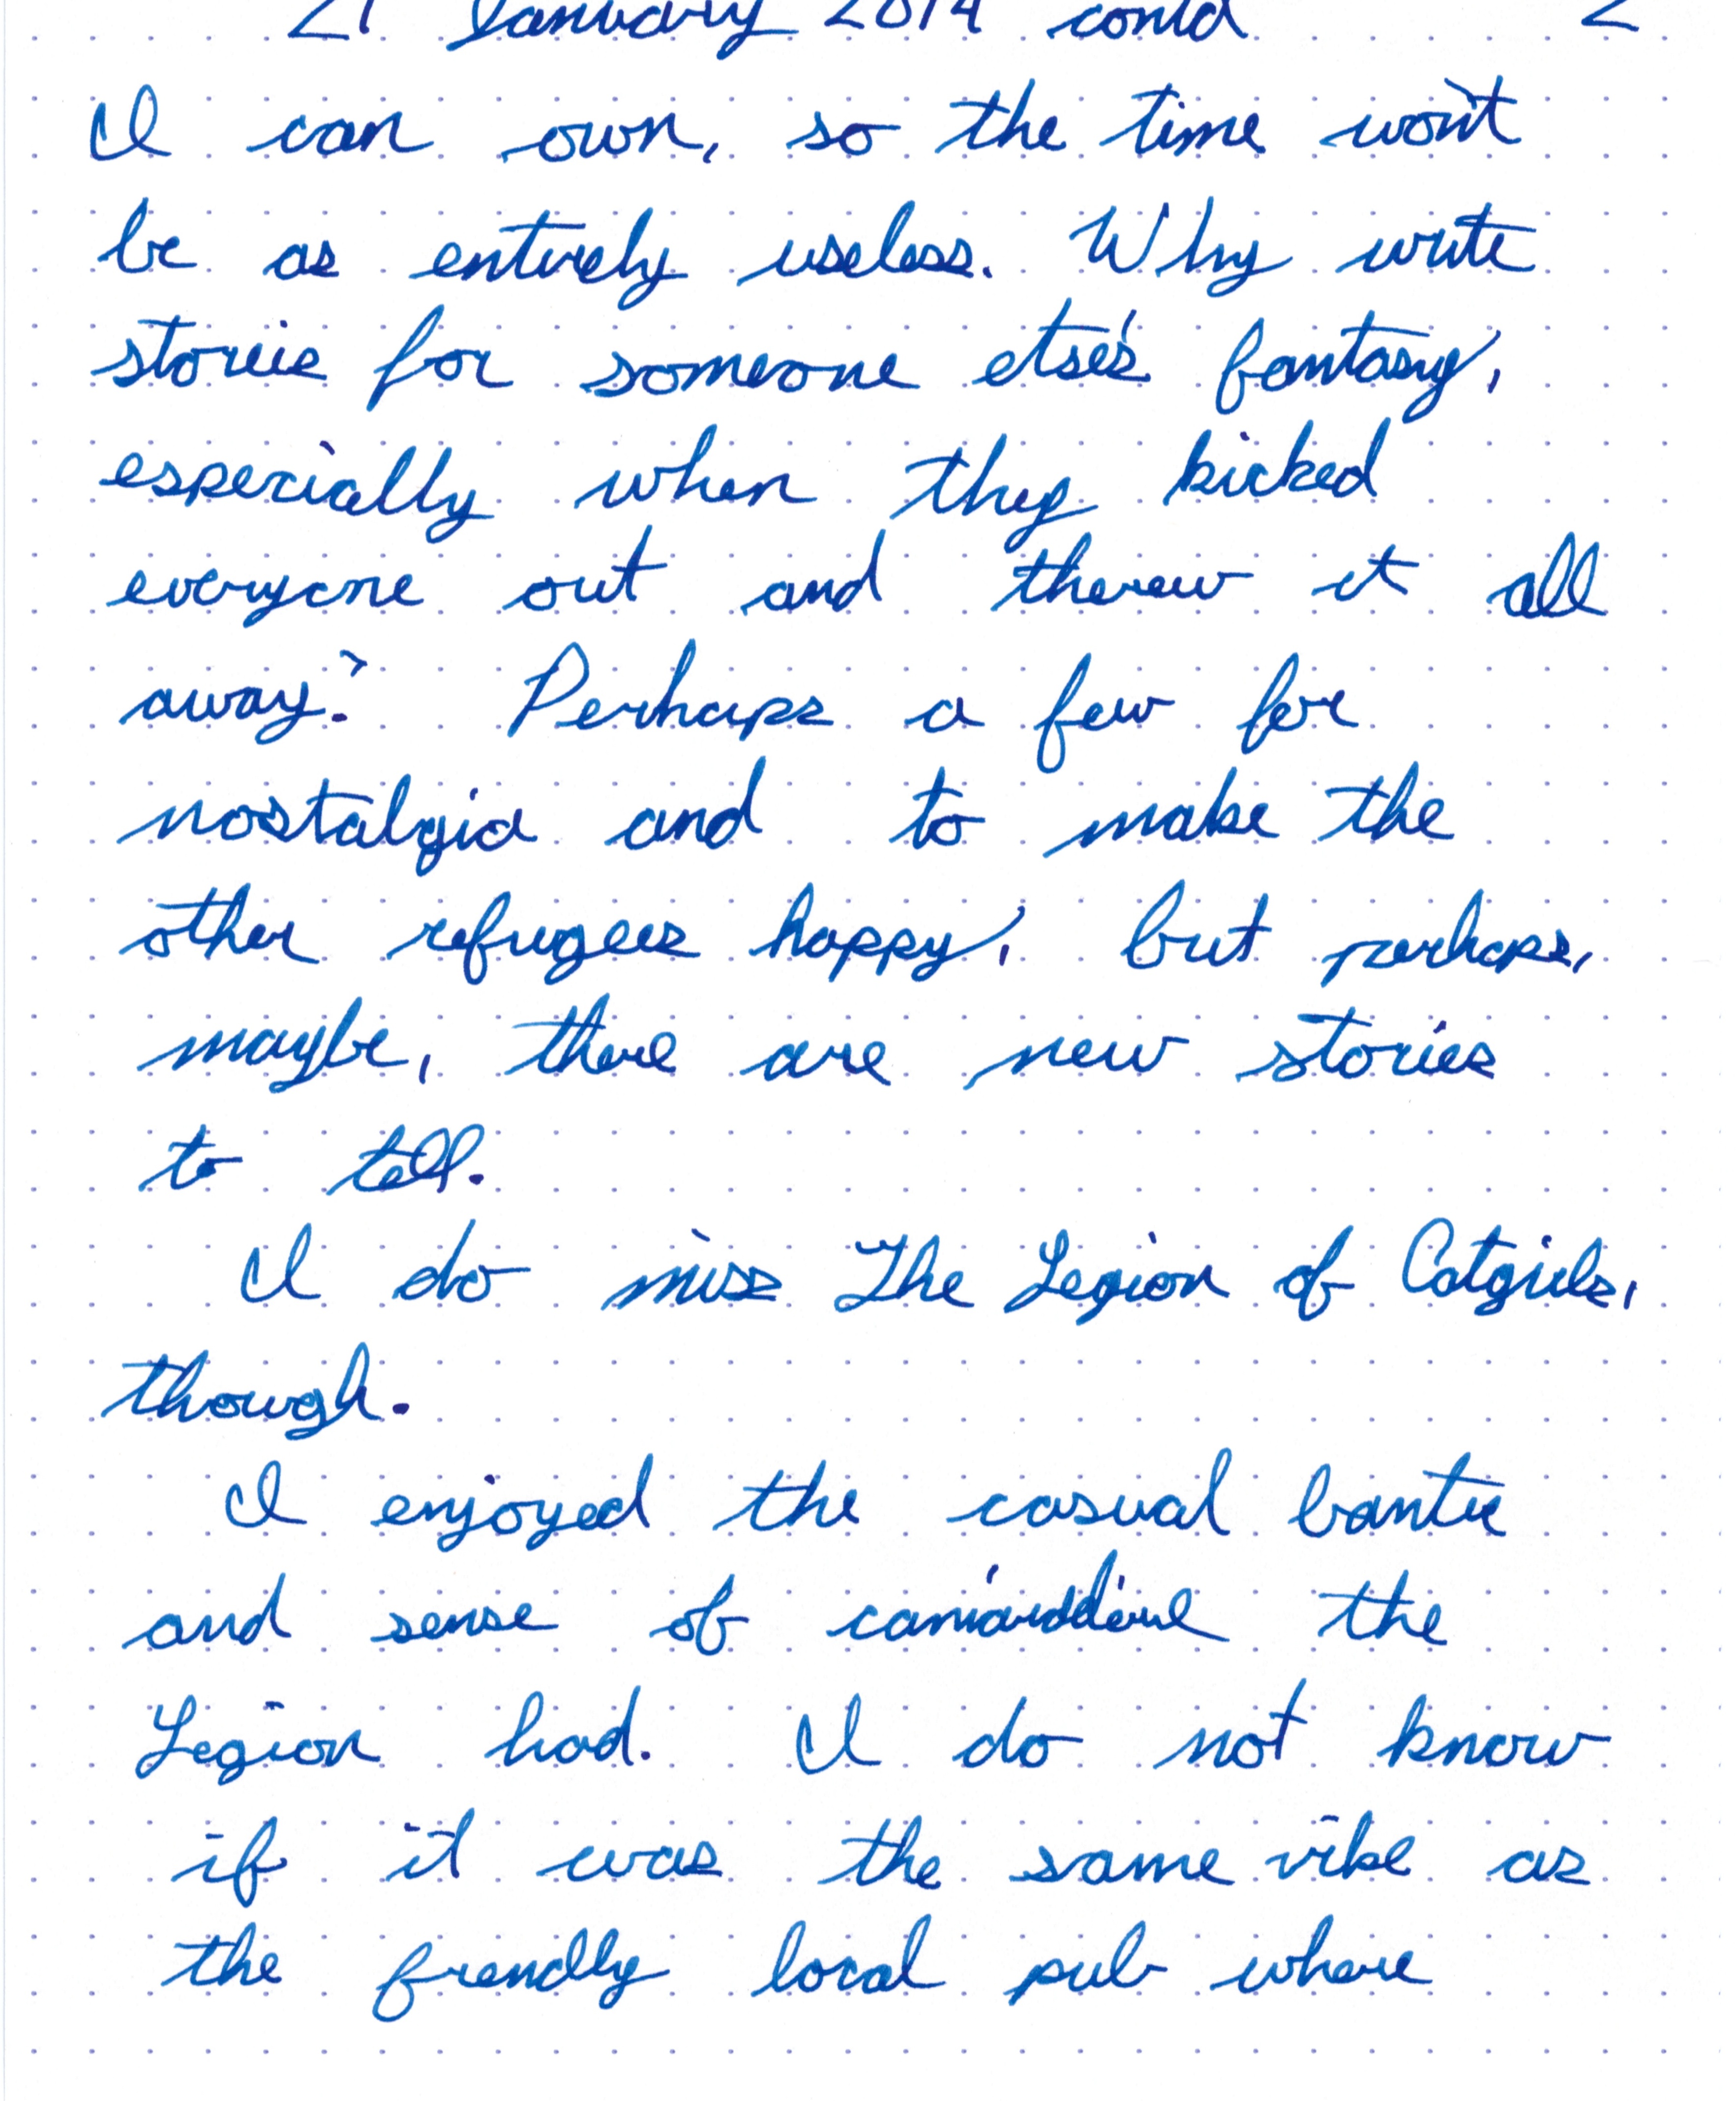 21 January 2014 contd 2
I can own, so the time won't
be as entirely useless. Why write
stories for someone etse's fantasy,
especially when they kicked
everyone out and therew it all
away? Perhaps a few for
nostalgia and to make the
other refugees happy, but perhaps,
maybe, there are new stories
to tell.
I do miss The Legion of Catgirls,
though.
I enjoyed the casual banter
and sense of the
Legion had. I do not know
if it was the same vibe as
the friendly local pub where